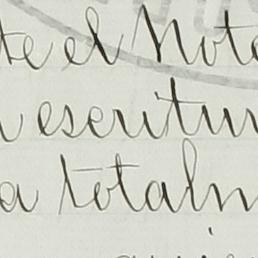 te el Nota
escritur
a totalm